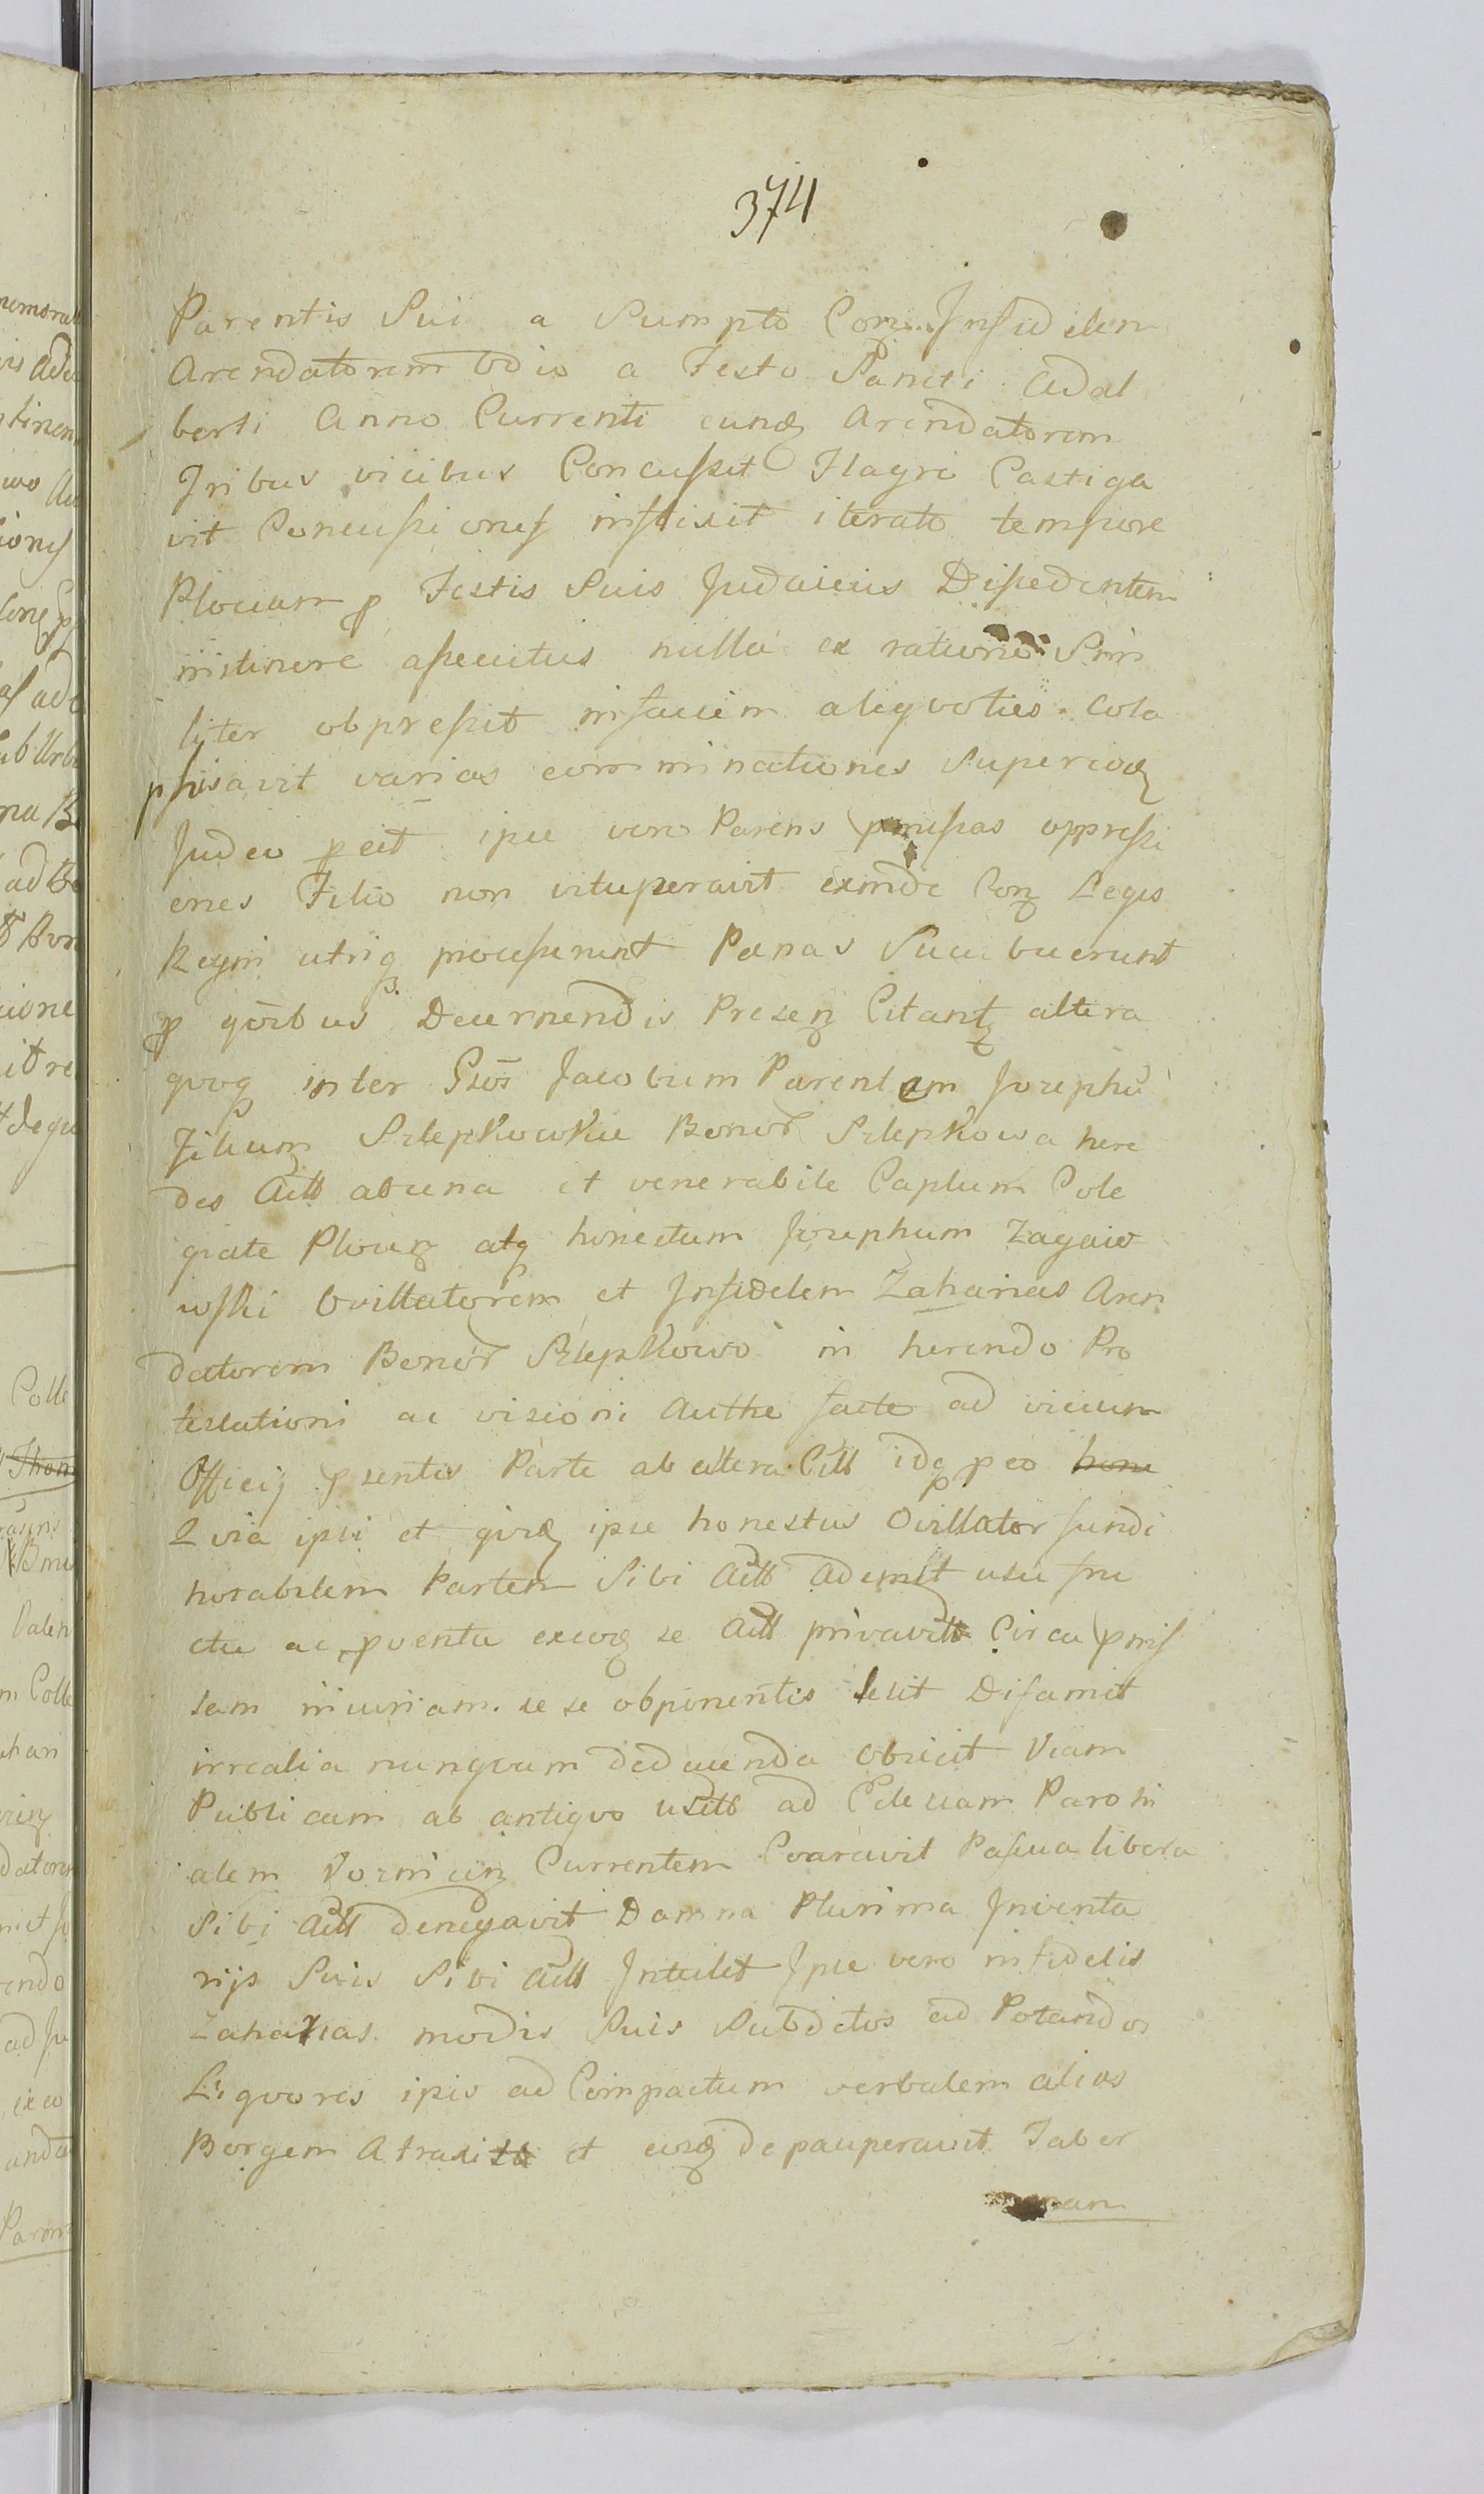 374
Parentis Sui a Sumpto Conz Infidelem
Arendatorem Odio a Festo Sancti Adal
berti Anno Currenti eunq Arendatorem
Tribus vicibus Concussit Flagri Castiga
vit Concussiones inflixit iterato tempore
Plociam p Festis Suis Judaicis Discedentem
in itinere assecutus nulla ex ratione Simi
liter obpressit in faciem aliqvoties Cola
phisavit varias comminationes Superioz
Judeo pecit ipse vero Parens pmissas oppressi
ones Filio non vituperavit exinde Conz Leges
Regni utriq processerunt Penas Sucubuerunt
p qvibus Decernendis Presenz Citantz altera
qvoq inter Gsos Jacobum Parentem Josephu
Filiumz Szlepkowskie Bonor Szlepkowa here
des Actt ab una et venerabile Caplum Cole
giate Plocenz atq honestum Josephum Zagaie
wski Ovillatorem et Infidelem Zaharias Aren
datorem Bonor Szlepkowo in herendo Pro
testationi ac visioni Authe facte ad vicium
Officij psentis Parte ab altera Citt idq peo hone
Qvia ipsi et qvidz ipse honestus Ovillator fundi
notabilem Partem Sibi Actt Ademit usu fru
ctu ac pventu exeoz se Actt privavit Circa pmis
sam injuriam se se obponentes lesit Difamit
irrealia nunqvam deducenda Obiecit Viam
Publicam ab antiqvo usitt ad Eclesiam Parochi
alem Currentem Coaravit Pascua libera
Sibi Actt denegavit Damna Plurima Inventa
rijs Suis Sibi Actt Intulit Ipse vero infidelis
Zaharias modis Suis Subditos ad Potandos
Liqvores ipsis ad Compactum verbalem alias
Borgem Atraxit et eosq depauperavit Taber
nam